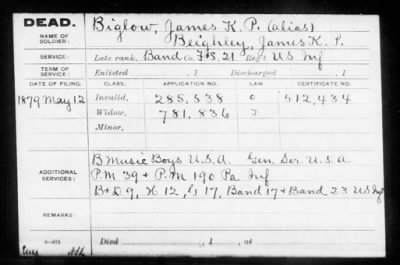 DEAD.
NAME OF SOLDIER:
Biglow, James K. P. (alias)
Beighley, James K. P.
SERVICE:
Late rank, Band Co. F&S 21 Reg't US Inf
TERM OF SERVICE:
Enlisted , 1 Discharged , 1
DATE OF FILING. CLASS. APPLICATION NO. LAW. CERTIFICATE NO.
1879 May 12 Invalid, 285,538 512,434
Widow, 781,836
Minor,
ADDITIONAL SERVICES:
B Music Boys U.S.A. Gen. Ser U.S.A
P.M 39 & P.M 190 Pa Inf
B & D 9, H 12, G 17, Band 17 & Band 23 US Inf
REMARKS:
Died , 1 , at